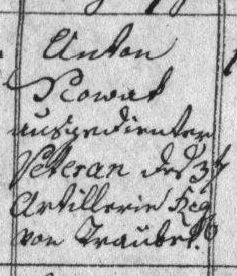 Anton
Nowak
ausgedienter
Veteran des 3t
Artillerie Reg
von Traubet.